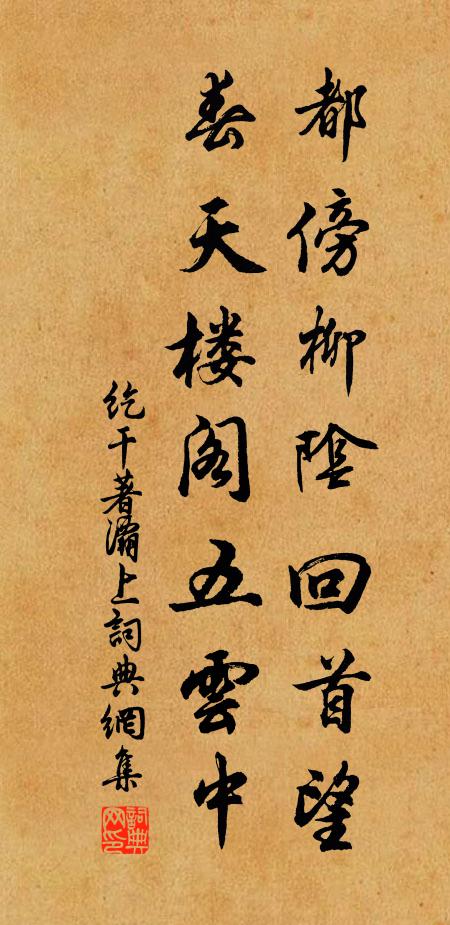 都傍柳陰回首望
春天楼阁五雲中
紇干著灞上詞典網集
詞典网印